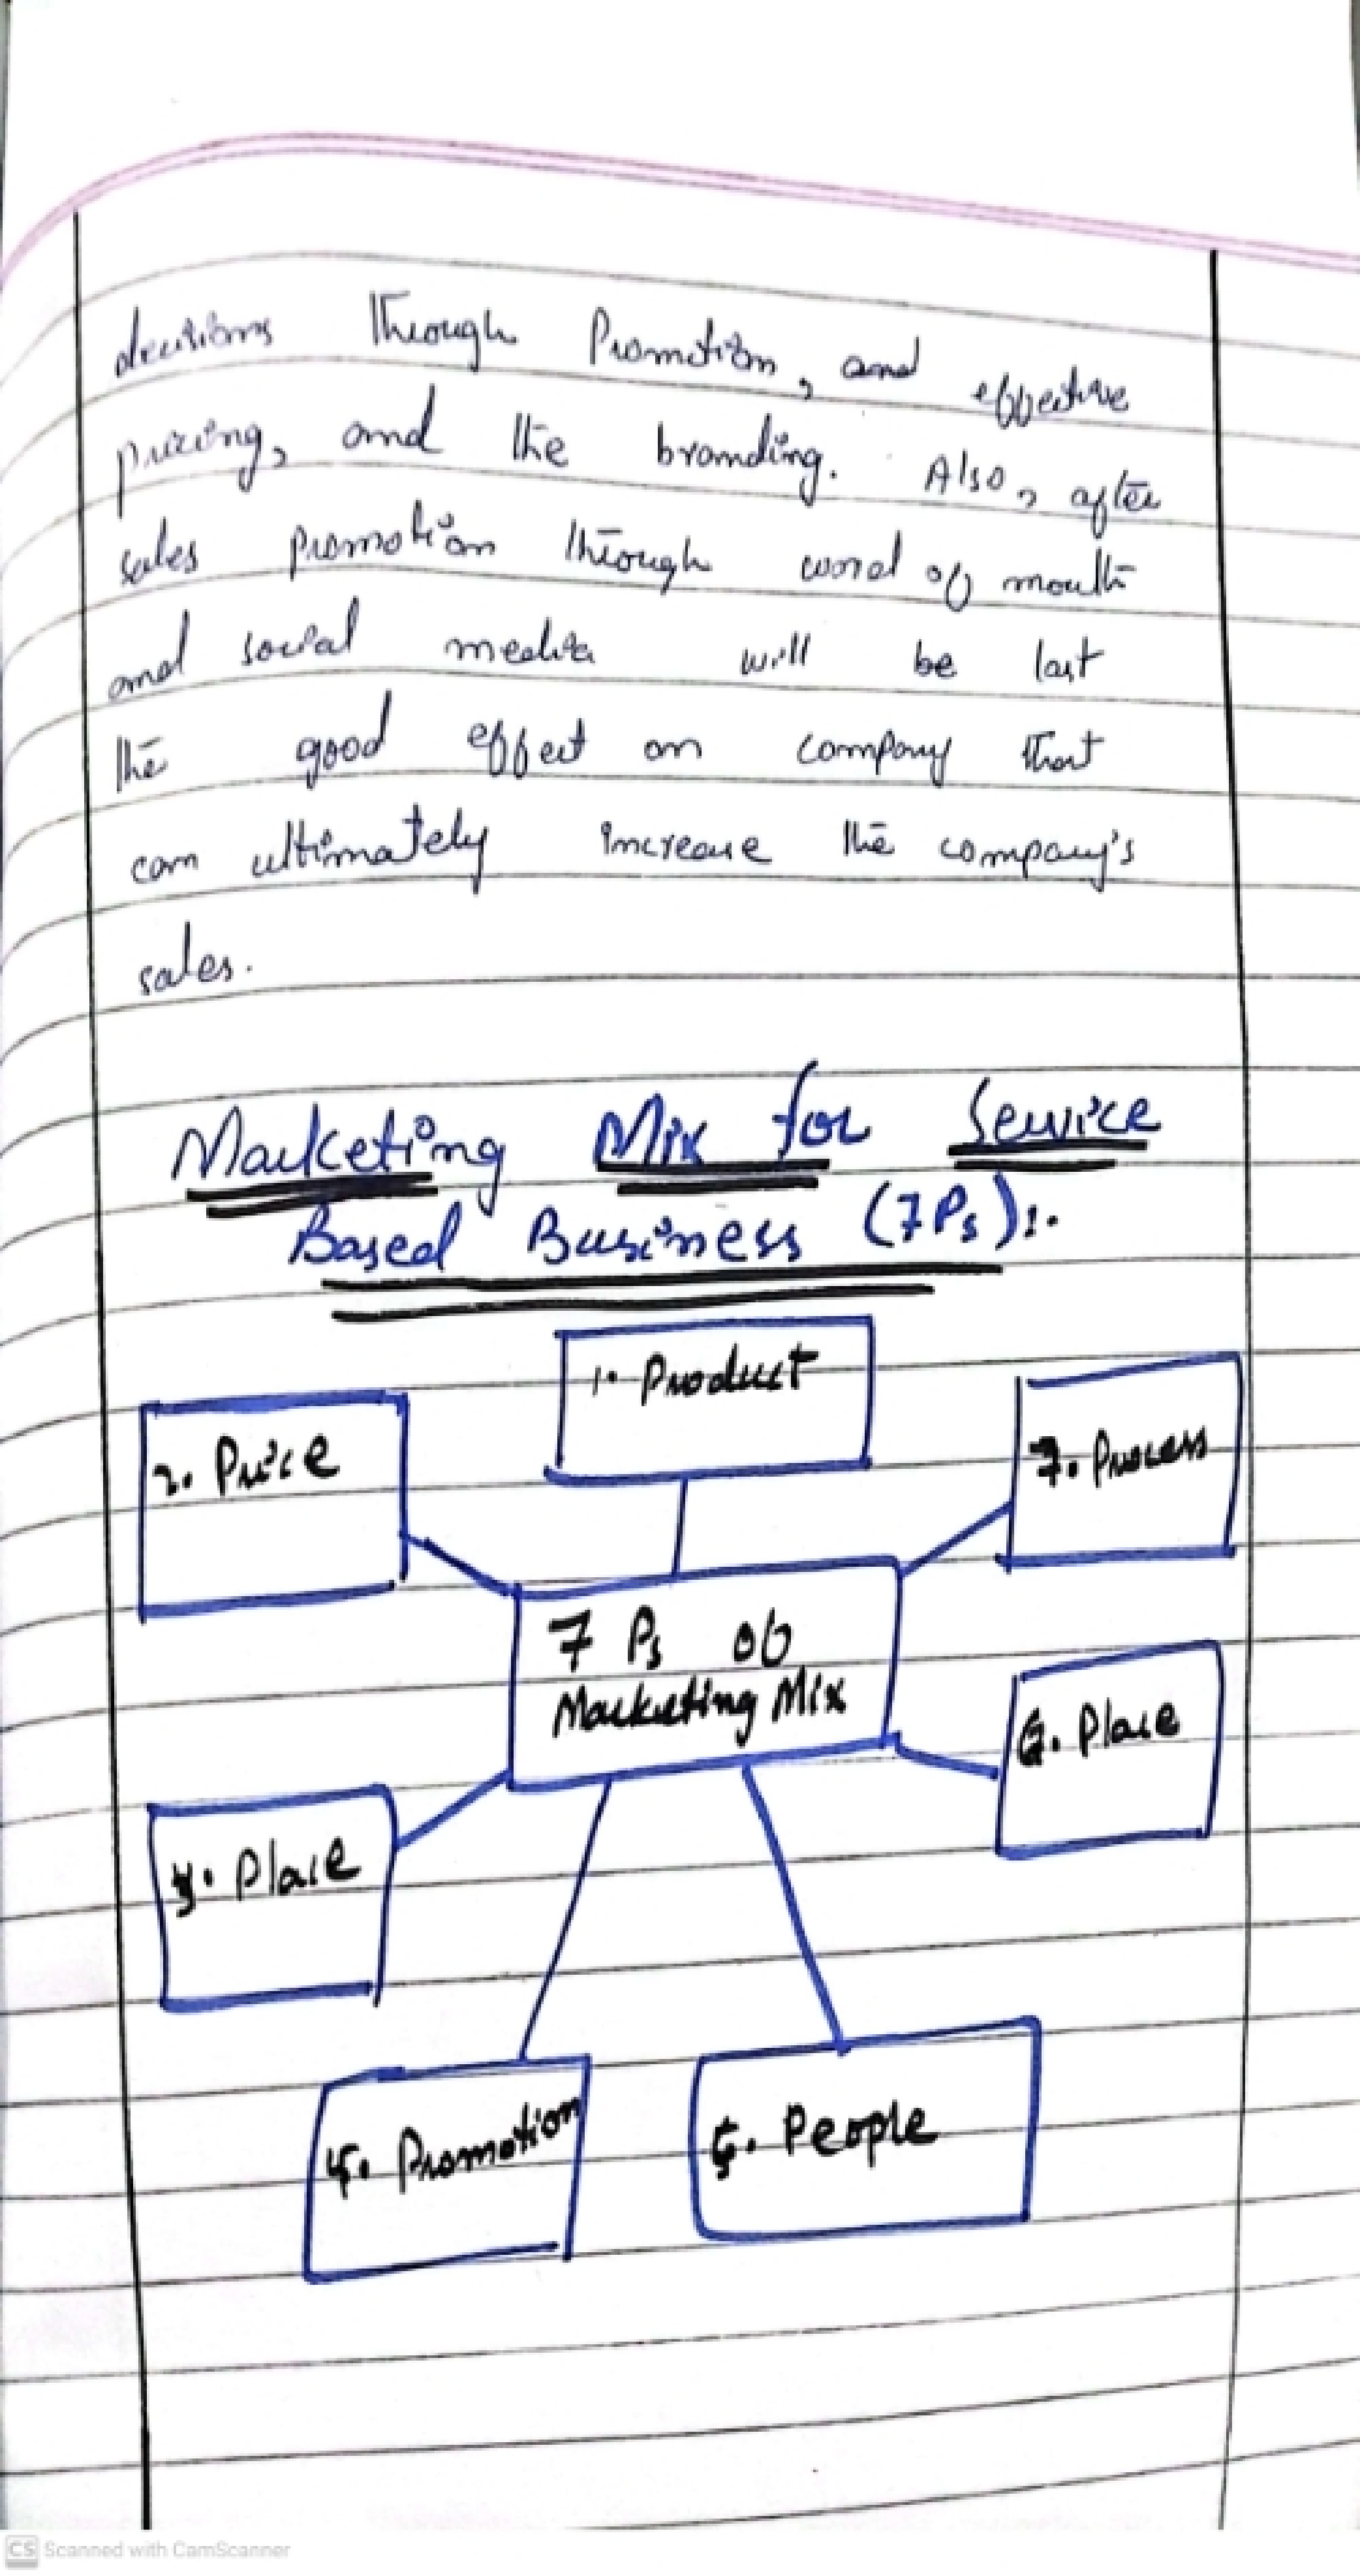 decisions through Promotion, and effective
pricing, and the branding. Also, after
sales promotion through word of mouth
and social media will be last
the good effect on company that
can ultimately increase the company's
sales.
Marketing Mix for Service
Based Business (7Ps):.
1. Product
2. Price
7. Process
7 Ps of
Marketing Mix
6. Place
3. Place
4. Promotion
5. People
CS Scanned with CamScanner